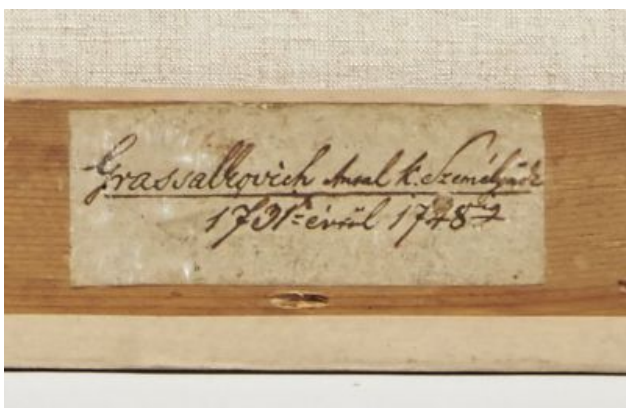 Grassalkovich Antal k. Személynök
1731ik évről 1748ig